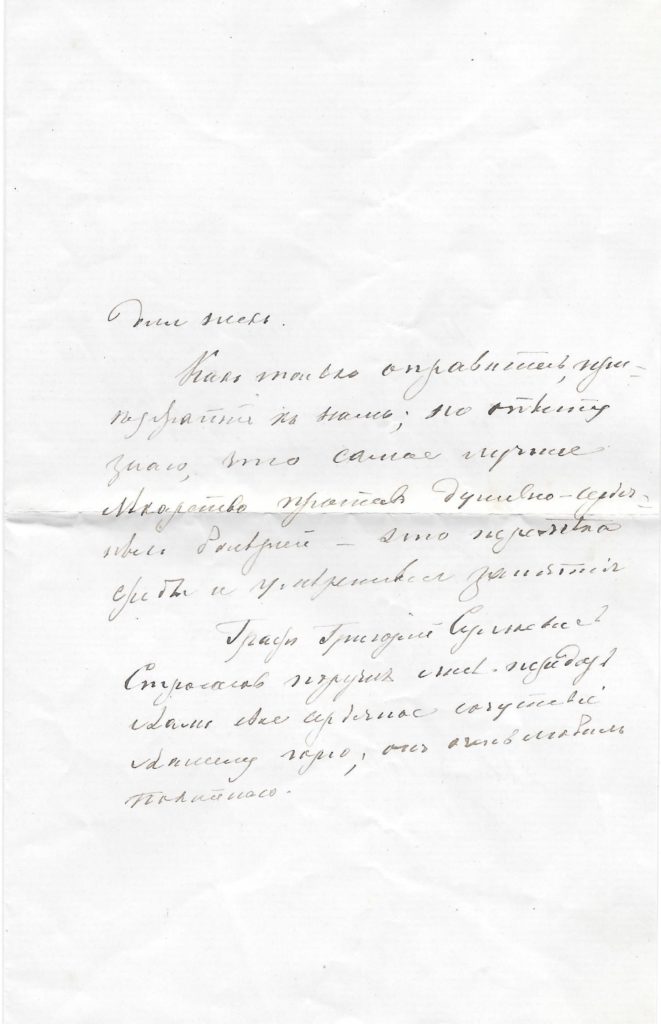 Какъ только оправитесь, при-
къ намъ; по опыту
знаю, что самое лучшее
лекарство противъ душевно-сердеч-
ныхъ болезней – это перемѣна
среды и умѣренныя занятія
Графъ Григорій Сергѣевичъ
Строгановъ поручилъ мнѣ передать
Вамъ его сердечное сочуствіе
Вашему горю; онъ очень любилъ
покойнаго.